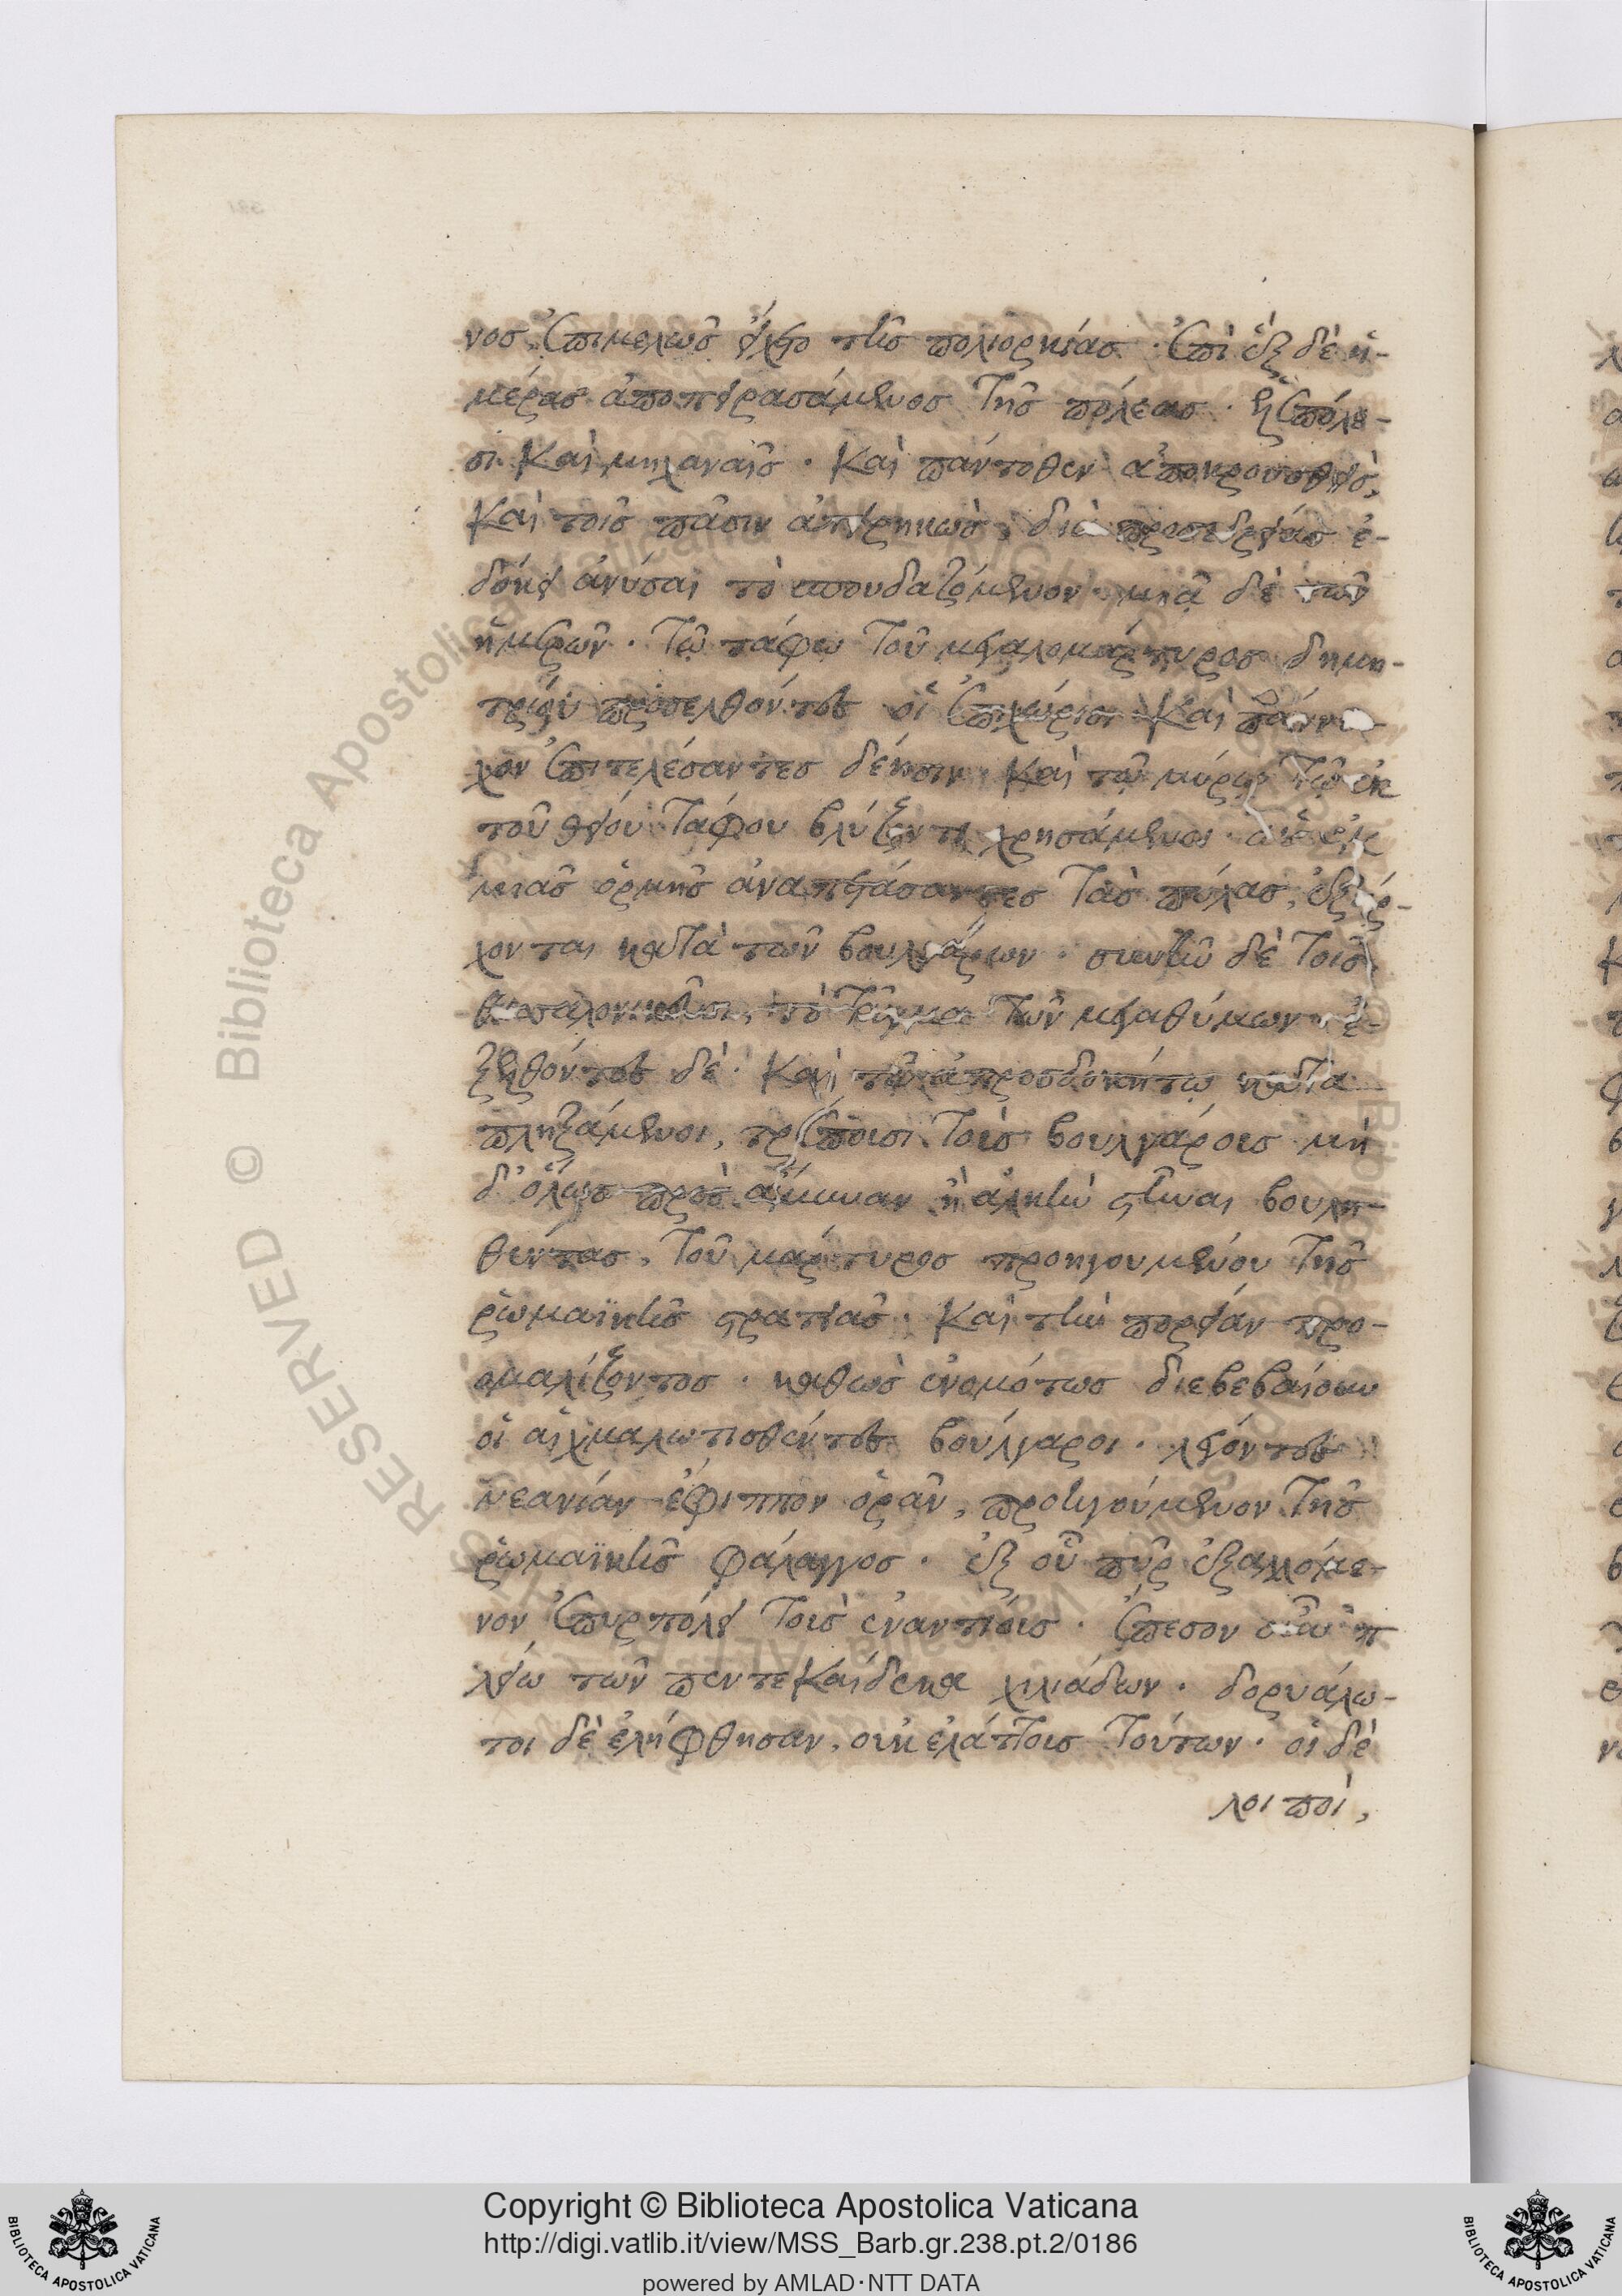 νος, ἐπιμελῶς εἴχετο τῆς πολιορκίας. ἐπὶ ἓξ δὲ ἡ-
μέρας ἀποπειρασάμενος τῆς πόλεως. ἑλεπόλε-
σι καὶ μηχαναῖς. καὶ πάντοθεν ἀποκρουσθεὶς,
καὶ τοῖς πᾶσιν ἀπειρηκὼς, διὰ προσεδρείας ἐ-
δόκει ἀνύσαι τὸ σπουδαζόμενον. μιᾷ δὲ τῶν
ἡμερῶν. τῷ τάφῳ τοῦ μεγαλομάρτυρος δημη-
τρίου προσελθόντες οἱ ἐπιχώριοι καὶ πάννυ-
χον ἐπιτελέσαντες δέησιν καὶ τῷ μύρῳ τῷ ἐκ
τοῦ θείου τάφου βλύζοντι χρησάμενοι. ὡς ἐκ
μιᾶς ὁρμῆς ἀναπετάσαντες τὰς πύλας, ἐξέρ-
χονται κατὰ τῶν βουλγάρων. συνῆν δὲ τοῖς
θεσσαλονικεῦσι, τὸ τάγμα τῶν μεγαθύμων ἐ-
ξελθόντες δὲ. καὶ τῷ ἀπροσδοκήτῳ κατα
πληξάμενοι, τρέπουσι τοὺς βουλγάροις μὴ
δ' ὅλως πρὸς ἄμυναν ἢ ἀλκὴν στῆναι βουλη-
θέντας, τοῦ μάρτυρος προηγουμένου τῆς
ῥωμαϊκῆς στρατιᾶς. καὶ τὴν πορείαν προ-
ομαλίζοντος. καθὼς ἐνομότως διεβεβαίουν
οἱ αἰχμαλωτισθέντες βούλγαροι. λέγοντες
νεανίαν ἔφιππον ὁρᾶν, προηγούμενον τῆς
ῥωμαϊκῆς φάλαγγος. ἐξ οὗ πῦρ ἐξαλλόμε-
νον ἐπυρπόλει τοὺς ἐναντίους. ἔπεσον οὖν π
λείω τῶν πεντεκαίδεκα χιλιάδων. δορυάλω-
τοι δὲ ἐλήφθησαν, οὐκ ἐλάττοις τούτων. οἱ δὲ
λοιποὶ,
Copyright © Biblioteca Apostolica Vaticana
http://digi.vatlib.it/view/MSS_Barb.gr.238.pt.2/0186
powered by AMLAD·NTT DATA